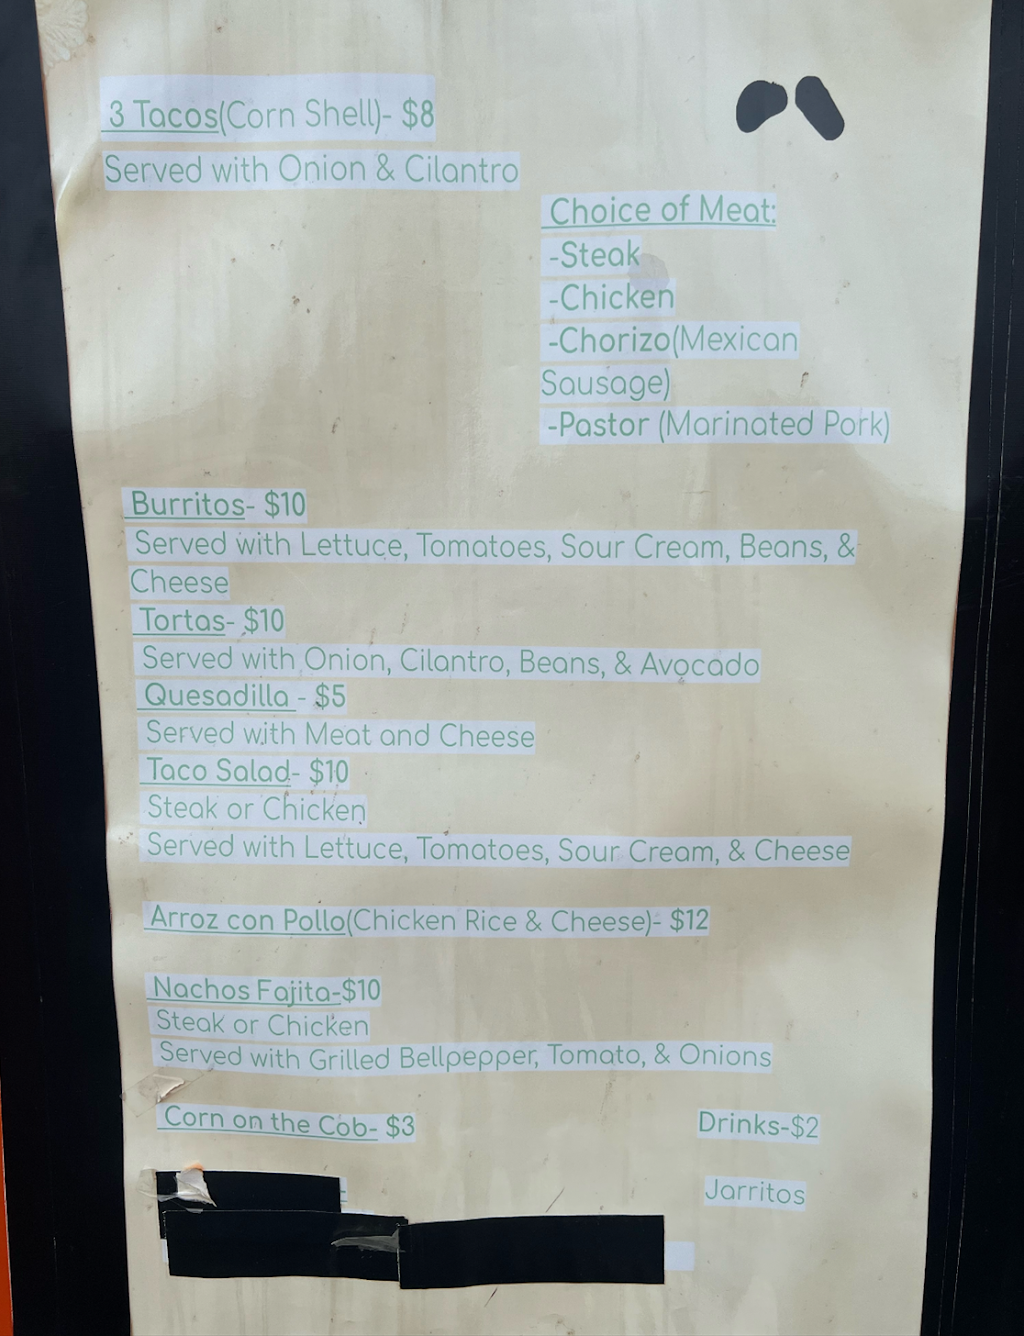 3 Tacos(Corn Shell)- $8
Served with Onion & Cilantro
Choice of Meat:
-Steak
-Chicken
-Chorizo(Mexican
Sausage)
-Pastor (Marinated Pork)
Burritos- $10
Served with Lettuce, Tomatoes, Sour Cream, Beans, &
Cheese
Tortas- $10
Served with Onion, Cilantro, Beans, & Avocado
Quesadilla - $5
Served with Meat and Cheese
Taco Salad- $10
Steak or Chicken
Served with Lettuce, Tomatoes, Sour Cream, & Cheese
Arroz con Pollo(Chicken Rice & Cheese)- $12
Nachos Fajita-$10
Steak or Chicken
Served with Grilled Bellpepper, Tomato, & Onions
Corn on the Cob- $3
Drinks-$2
Jarritos